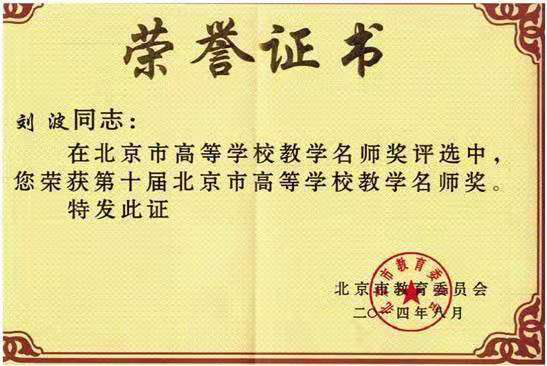 荣誉证书
刘波同志：
在北京市高等学校教学名师奖评选中，
您荣获第十届北京市高等学校教学名师奖。
特发此证
北京市教育委员会
北京市教育委员会
二〇一四年八月